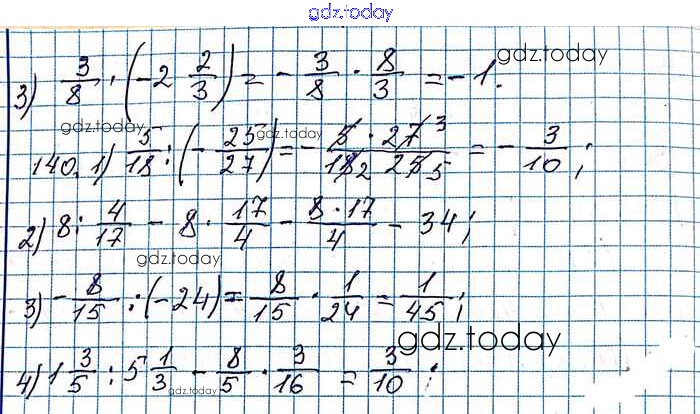 gdz.today
gdz.today
3) 3/8 : (-2 2/3) = - 3/8 · 8/3 = -1.
gdz.today gdz.today
140. 1) 5/18 : (- 25/27) = - 5 · 27 3 / 18 2 25 5 = - 3/10;
2) 8 : 4/17 - 8 · 17/4 - 8 · 17/4 - 34;
gdz.today
3) - 8/15 : (-24) = 8/15 · 1/24 = 1/45;
gdz.today
4) 1 3/5 : 5 1/3 - 8/5 · 3/16 = 3/10;
gdz.today